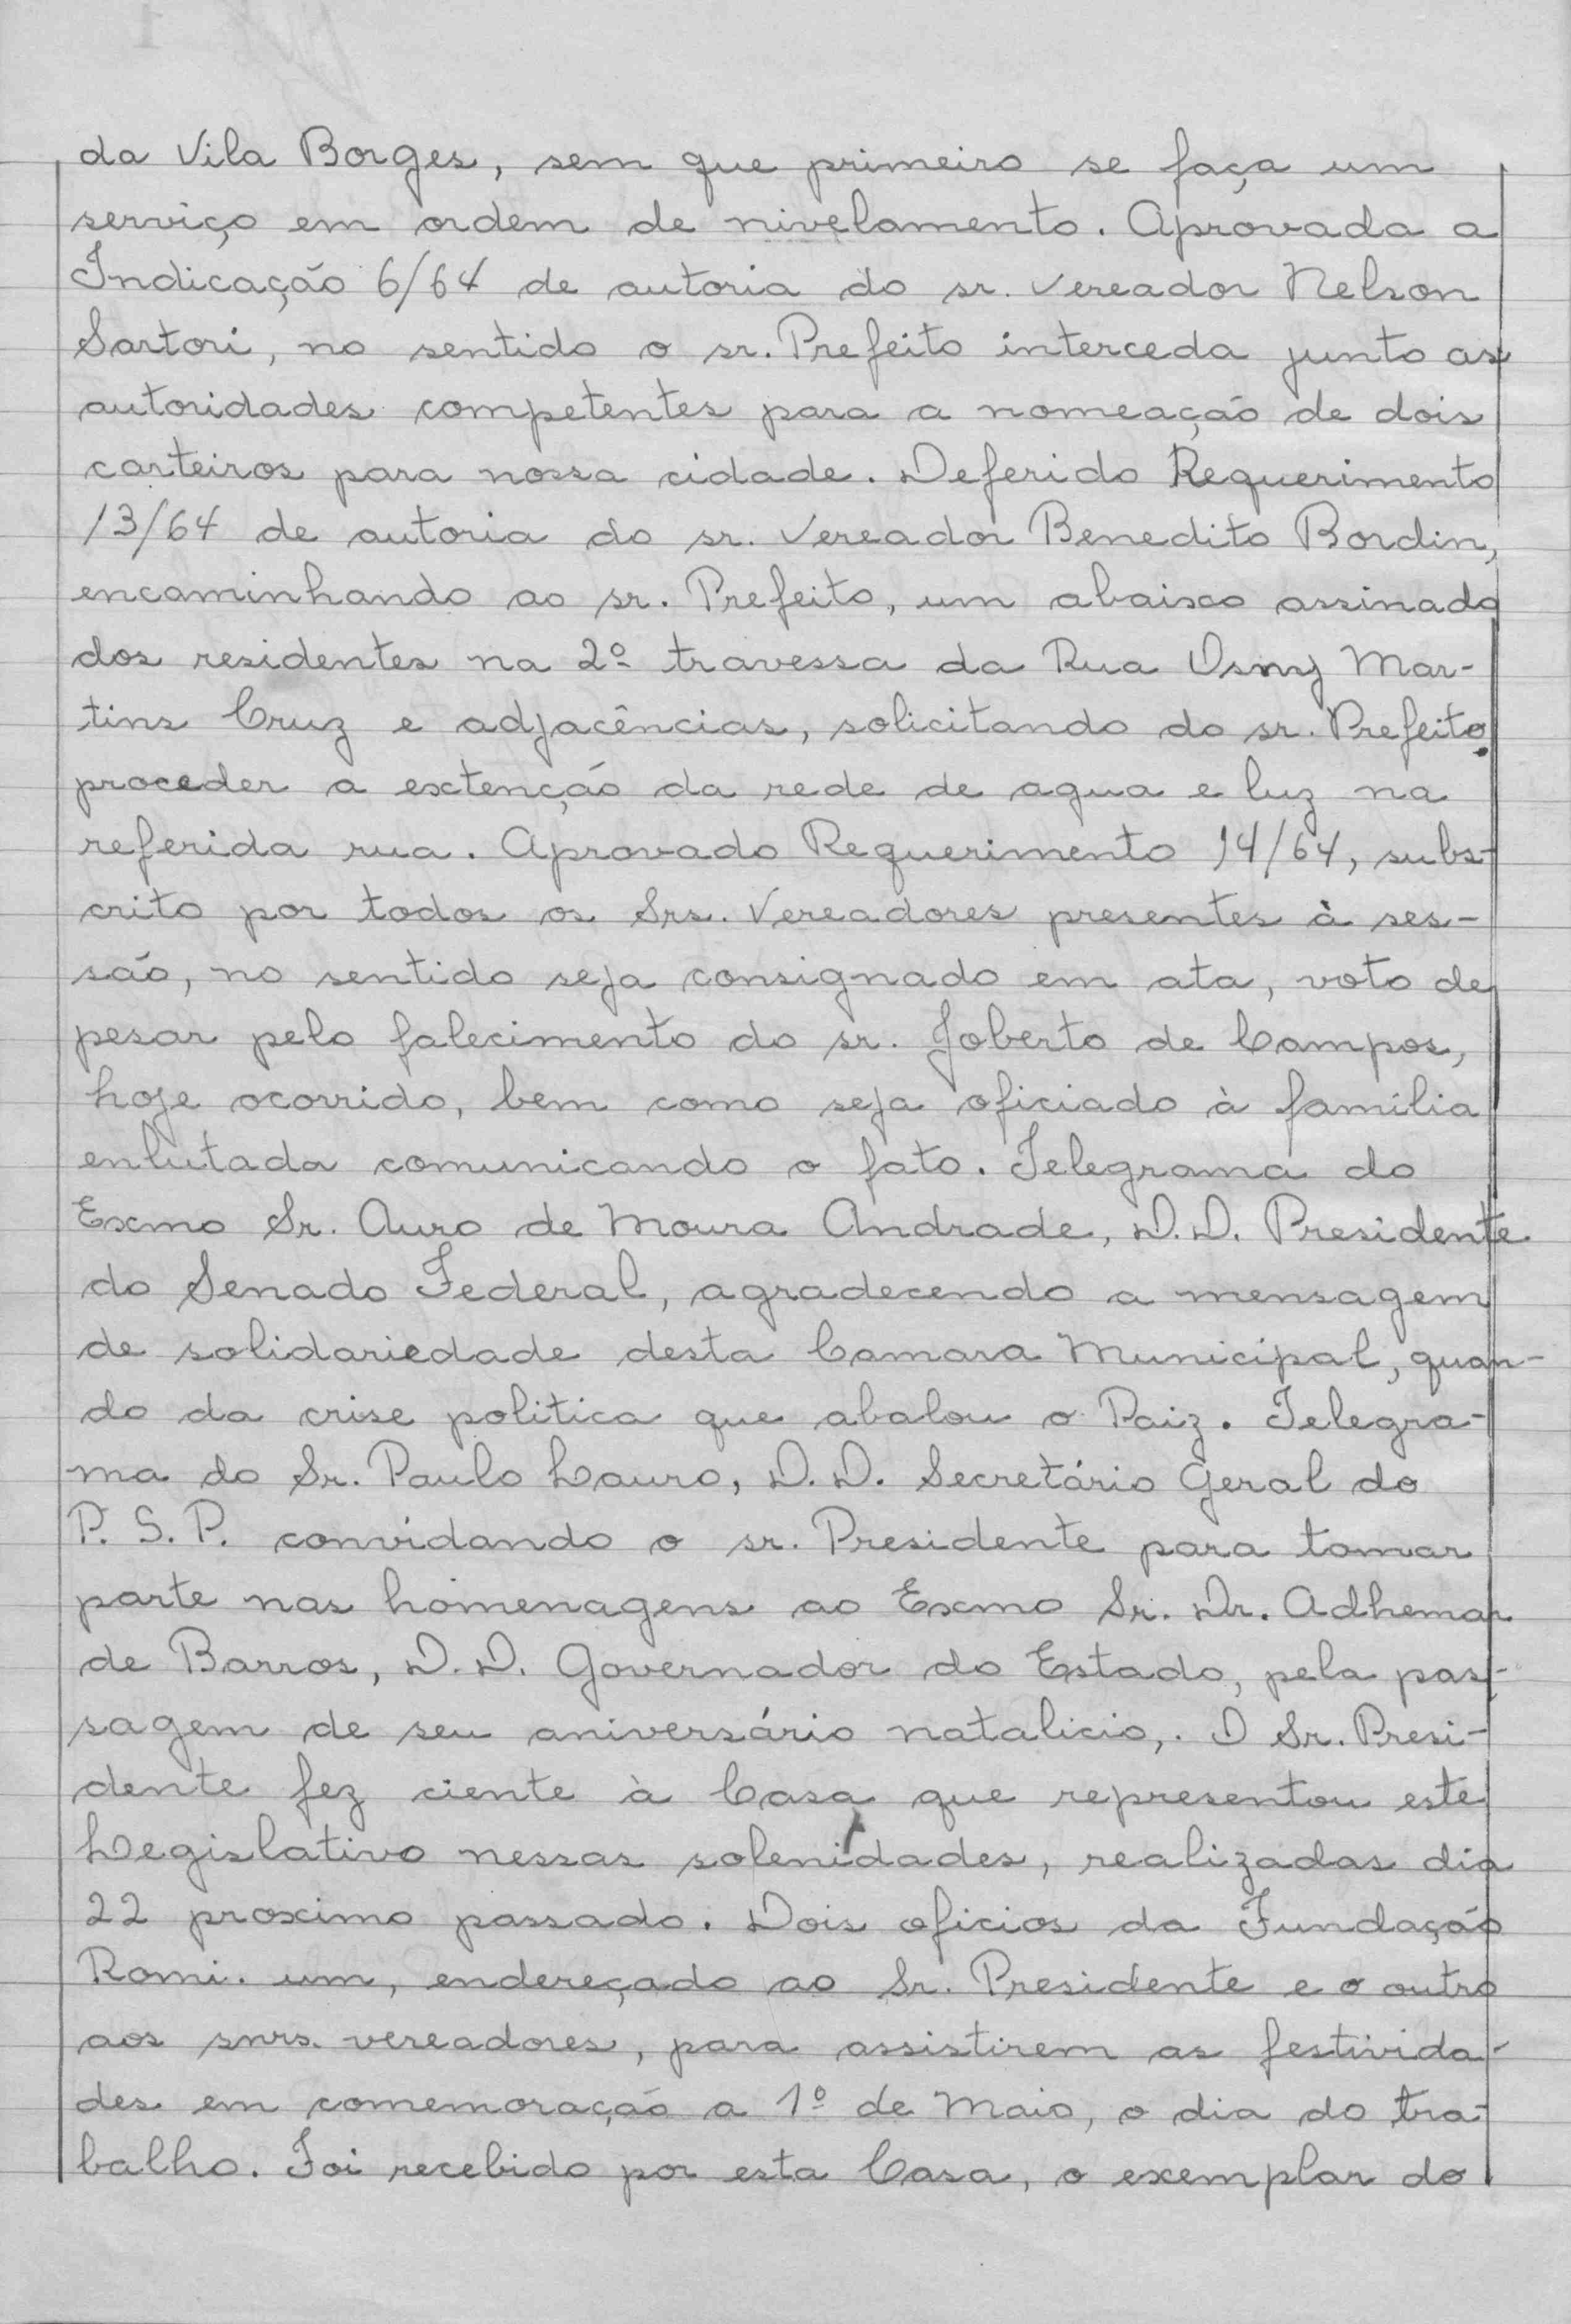 da Vila Borges, sem que primeiro se faça um
serviço em ordem de nivelamento. Aprovada a
Indicação 6/64 de autoria do sr. Vereador Nelson
Sartori, no sentido o sr. Prefeito interceda junto as
autoridades competentes para a nomeação de dois
carteiros para nossa cidade. Deferido Requerimento
13/64 de autoria do sr. Vereador Benedito Bordin,
encaminhando ao sr. Prefeito, um abaixo assinado
dos residentes na 2º travessa da Rua Osny Mar-
tins Cruz e adjacências, solicitando do sr. Prefeito
proceder a extenção da rede de agua e luz na
referida rua. Aprovado Requerimento 14/64, subs-
crito por todos os Srs. Vereadores presentes à ses-
são, no sentido seja consignado em ata, voto de
pesar pelo falecimento do sr. Joberto de Campos,
hoje ocorrido, bem como seja oficiado à família
enlutada comunicando o fato. Telegrama do
Exmo Sr. Auro de Moura Andrade, D.D. Presidente
do Senado Federal, agradecendo a mensagem
de solidariedade desta Camara Municipal, quan-
do da crise politica que abalou o Paiz. Telegra-
ma do Sr. Paulo Lauro, D.D. Secretário Geral do
P. S. P. convidando o sr. Presidente para tomar
parte nas homenagens ao Exmo Sr. Dr. Adhemar
de Barros, D.D. Governador do Estado, pela pas-
sagem de seu aniversário natalicio,. O Sr. Presi-
dente fez ciente à Casa que representou este
Legislativo nessas solenidades, realizadas dia
22 proximo passado. Dois oficios da Fundação
Romi. um, endereçado ao Sr. Presidente e o outro
aos snrs. vereadores, para assistirem as festivida-
des em comemoração a 1º de Maio, o dia do tra-
balho. Foi recebido por esta Casa, o exemplar do